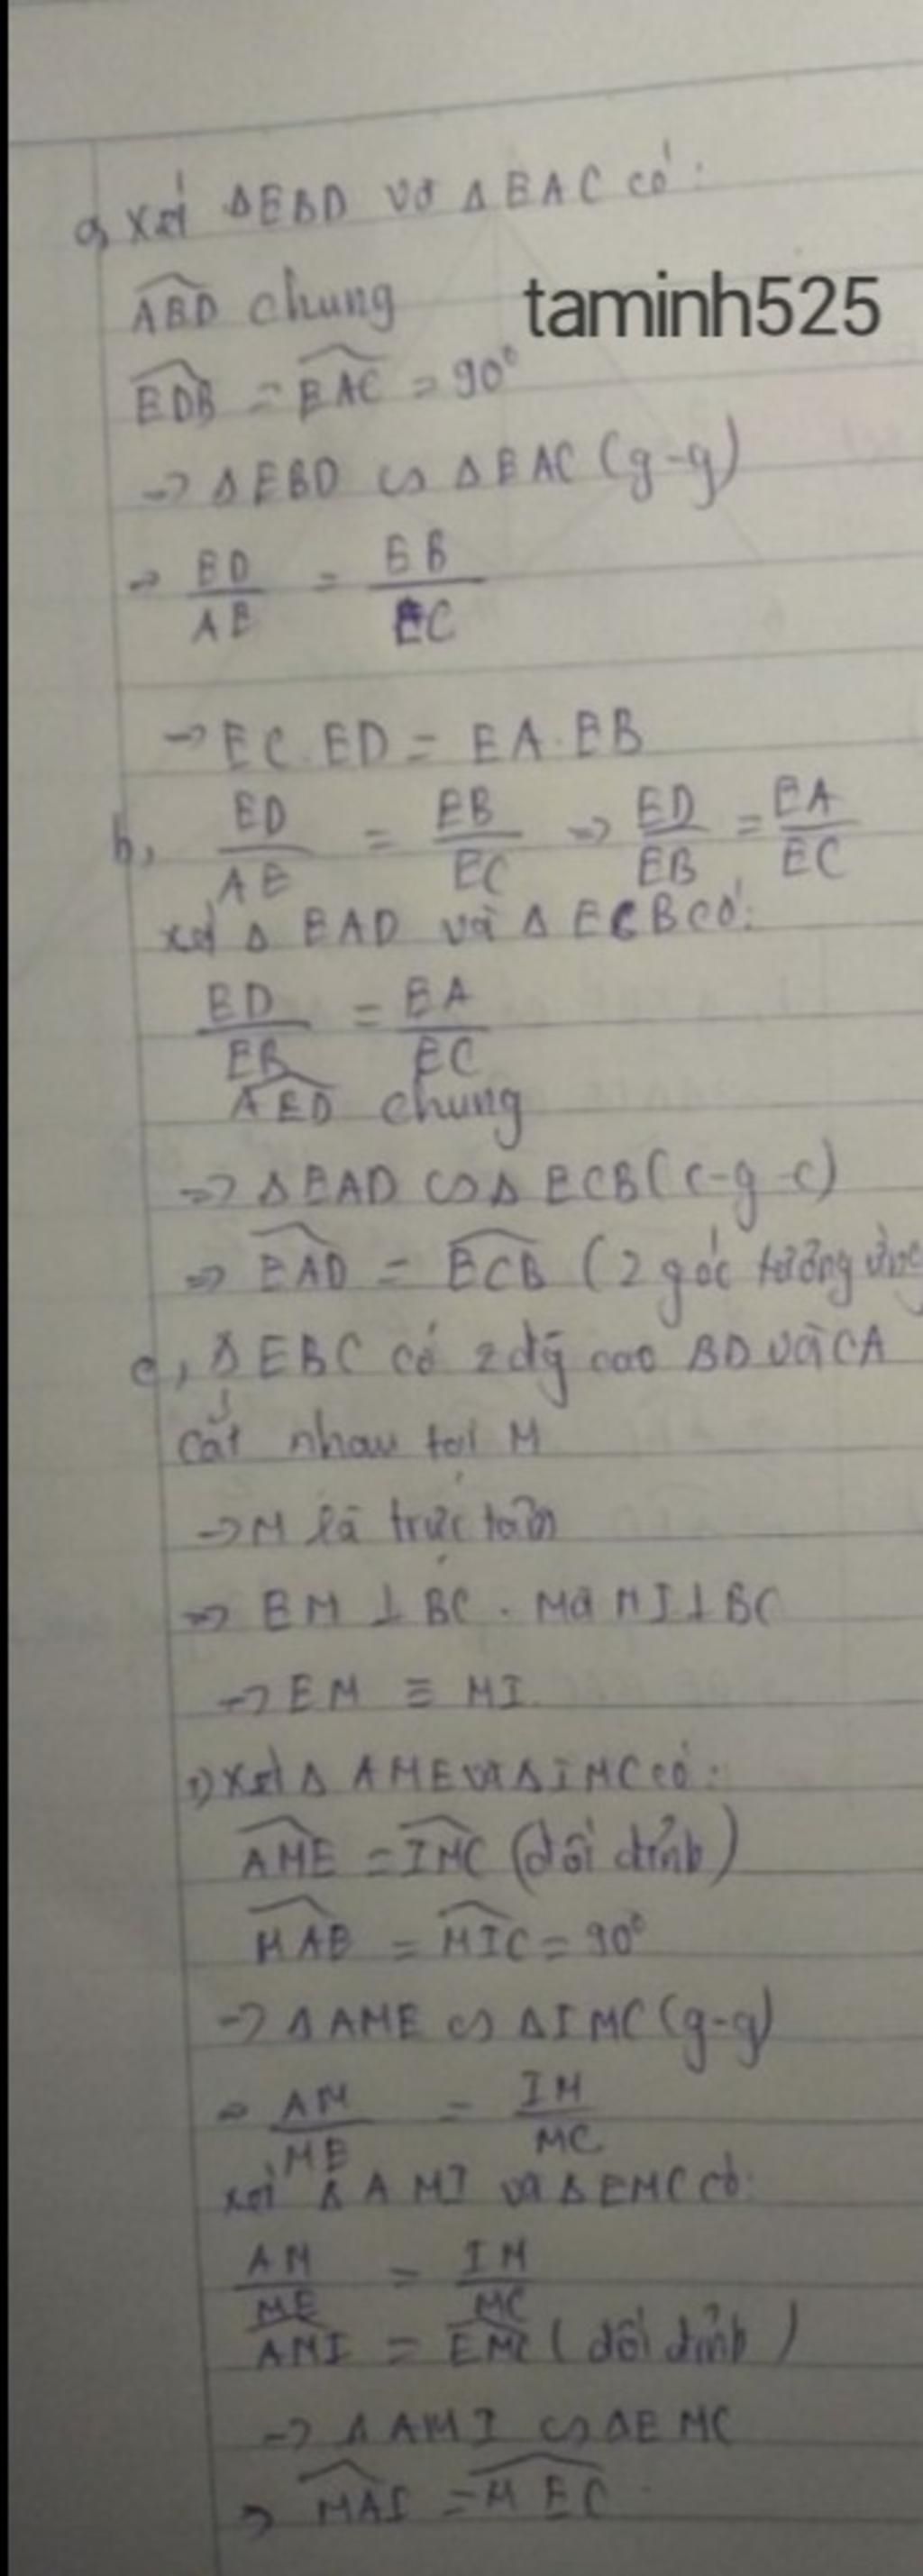 a, Xét ΔEBD và ΔEAC có:
ABD chung
taminh525
EDB = EAC = 90°
→ ΔEBD ∽ ΔEAC (g-g)
→ ED/AE = EB/EC
→ EC.ED = EA.EB
b, ED/AE = EB/EC => ED/EB = EA/EC
xét Δ EAD và Δ ECB có:
ED/EB = EA/EC
AED chung
=> ΔEAD ∽ Δ ECB (c-g-c)
=> EAD = ECB (2 góc tương ứng
c, ΔEBC có 2 đg cao BD và CA
cắt nhau tại M
→ M là trực tâm
=> EM ⊥ BC. Mà MI ⊥ BC
→ EM ≡ MI
1) Xét Δ AME và ΔIMC có:
AME = IMC (đối đỉnh)
MAE = MIC = 90°
→ ΔAME ∽ ΔIMC (g-g)
→ AM/ME = IM/MC
xét ΔAMI và ΔEMC có:
AM/ME = IM/MC
AMI = EMC (đối đỉnh)
→ ΔAMI ∽ ΔEMC
→ MAI = MEC